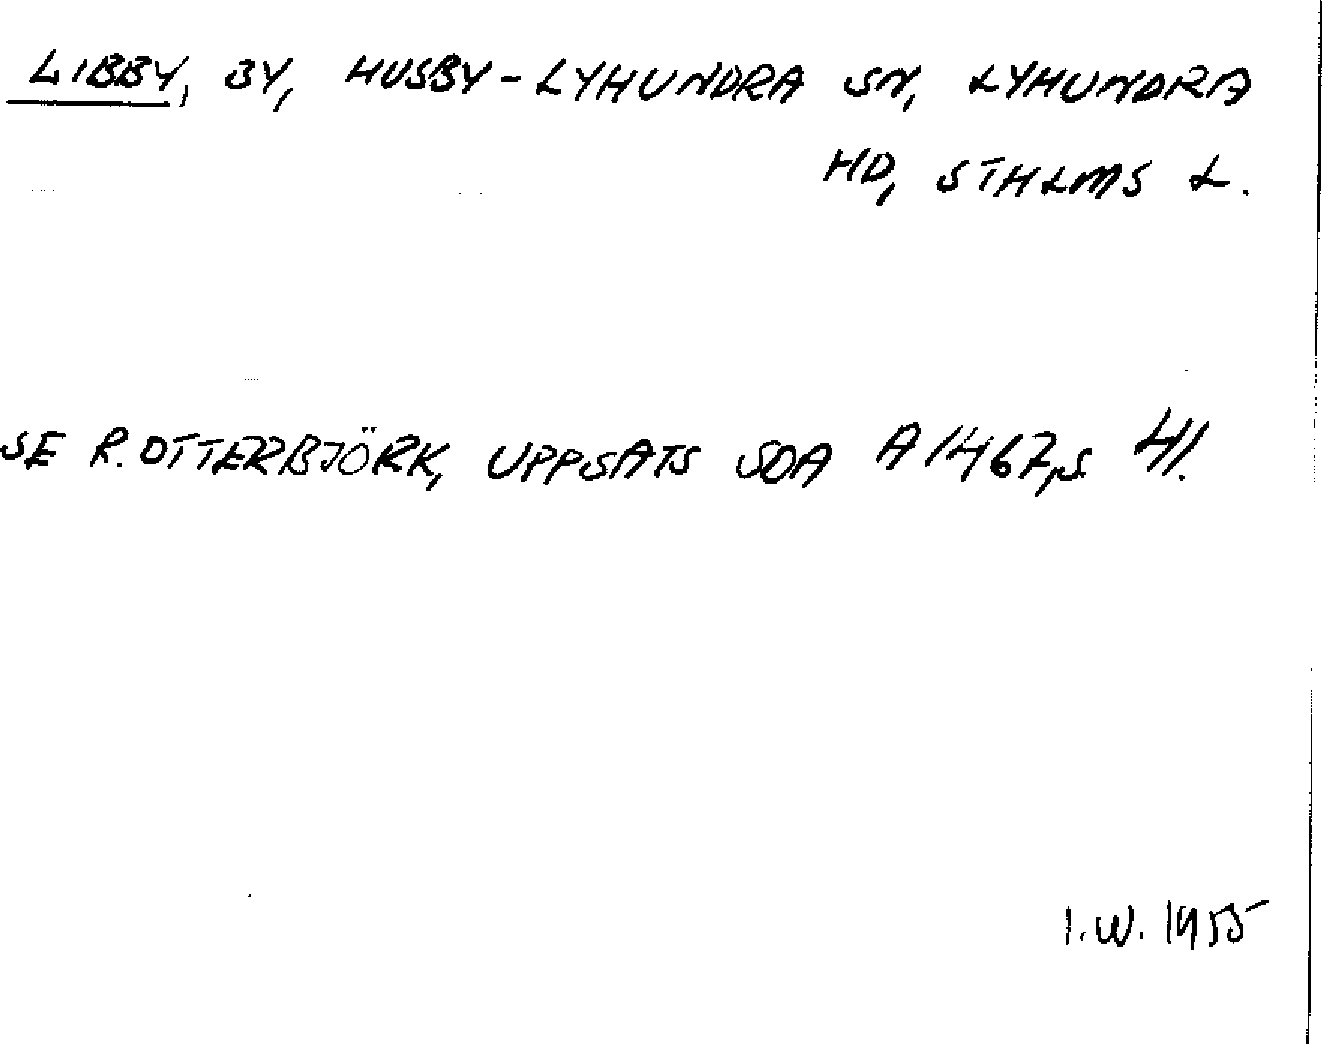 LIBBY, BY, HUSBY-LYHUNDRA SN, LYHUNDRA
HD, STHLMS L.
SE R. OTTERBJÖRK, UPPSATS SOA A 1467, S. 41.
I.W. 1955